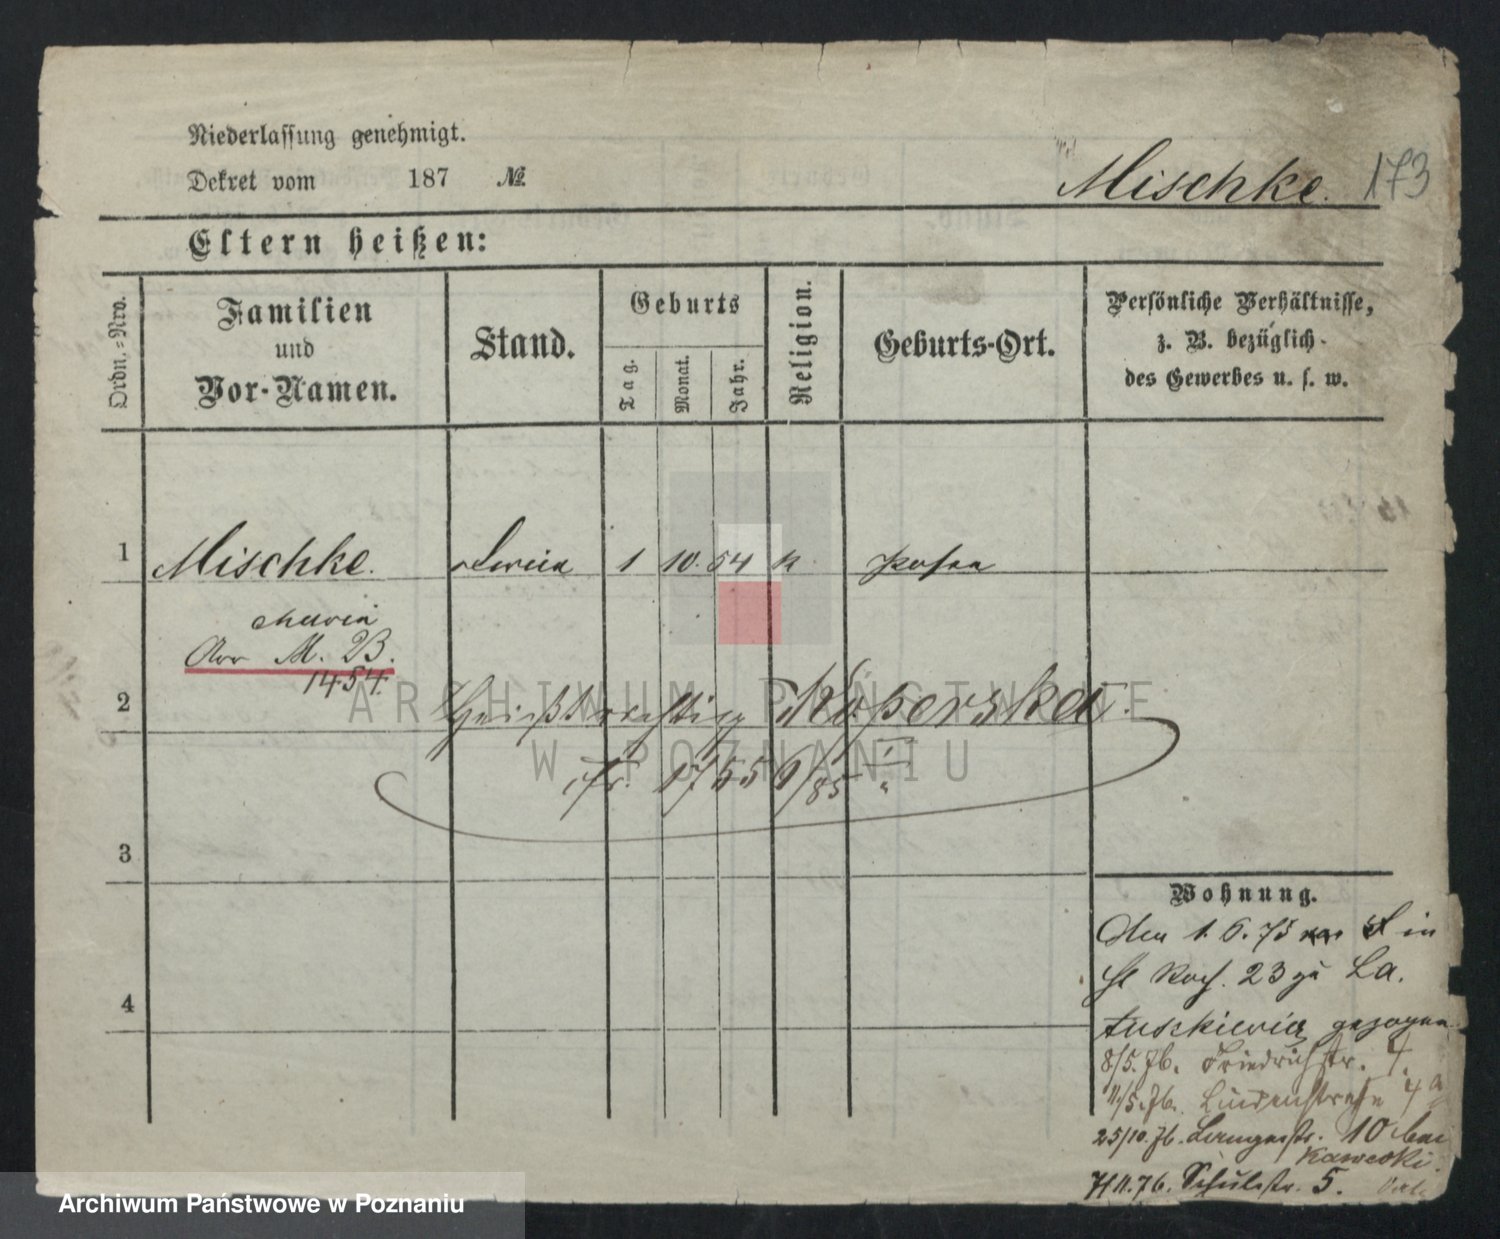 Niederlassung genehmigt.
Dekret vom 187 №
Mischke. 173
Eltern heißen:
Ordn.=Nro.
Familien
und
Vor-Namen.
Stand.
Geburts
Tag.
Monat.
Jahr.
Religion.
Geburts-Ort.
Persönliche Verhältnisse,
z. B. bezüglich
des Gewerbes u. s. w.
1 Mischke. 1 10. 54 k Posen
Maria
M. B.
1454.
2 Koperska.
17/55 9/85
3
4
Wohnung.
1. 6. 75 in
St Roch. 23 zu La.
tuskiewicz gezogen
8/5. 76. Friedrichstr. 4.
11/5. 76. Lindenstraße 4a
25/10. 76. Langestr. 10 bei
Kawecki.
7/11. 76. Schulstr. 5.
ARCHIWUM PAŃSTWOWE
W POZNANIU
Archiwum Państwowe w Poznaniu